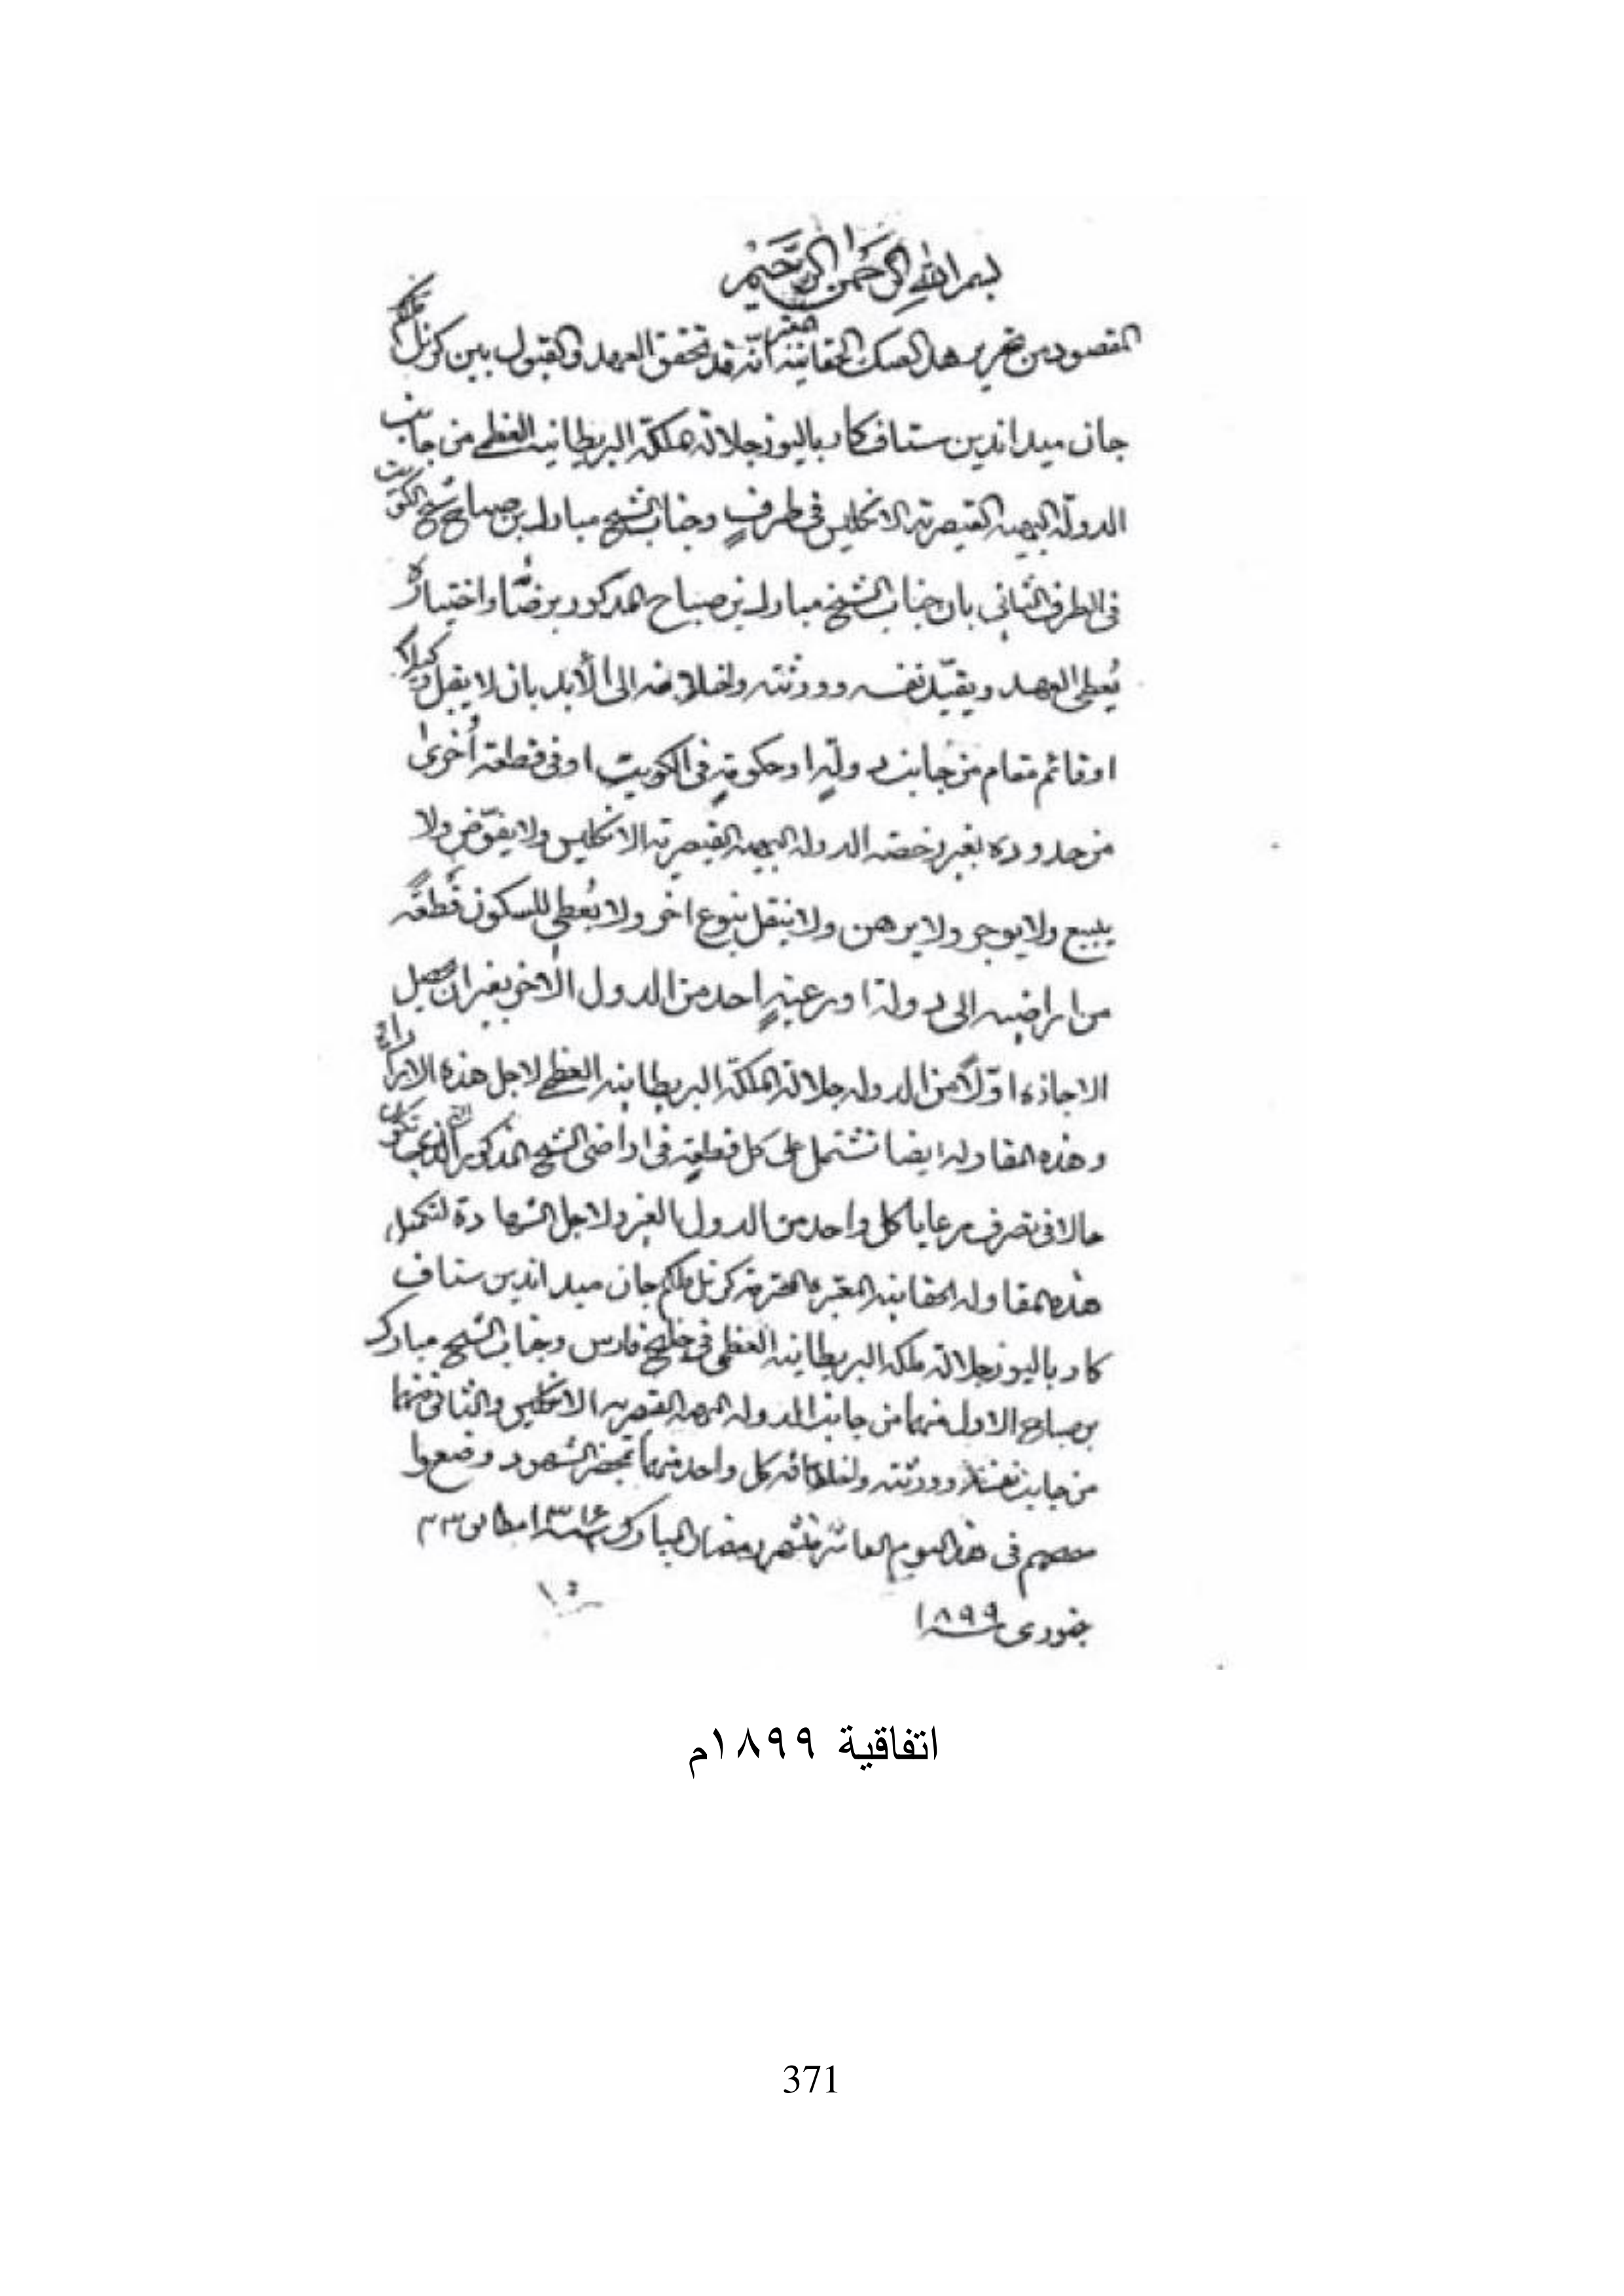 بسم الله الرحمن الرحيم
المقصود من تحرير هذا الصك الحقانية المعتبر انّه قد تحقق العهد والقبول بين كرنل ملكم
جان ميد اندين ستاف كار باليوز جلالة ملكة البريطانية العظمى من جانب
الدولة البهية القيصرية الانكليس في طرفٍ وجناب الشيخ مبارك بن صباح شيخ الكويت
في الطرف الثاني بان جناب الشيخ مبارك بن صباح المذكور برضاه واختياره
يُعطي العهد ويقيّد نفسه وورثته واخلافه الى الأبد بان لا يقبل وكيلا
او قائم مقام من جانب دولةٍ او حكومةٍ في الكويت او في قطعة اُخرى
من حدوده بغير رخصة الدولة البهية القيصرية الانكليس ولا يفوّض ولا
يبيع ولا يوجر ولا يرهن ولا ينتقل بنوع اخر ولا يُعطي للسكون قطعةً
من اراضيه الى دولة او رعيةِ احد من الدول الاخرى بغير ان يحصل
الاجازه اوّلاً من الدوله جلالة الملكة البريطانية العظمى لاجل هذه الارادة
وهذه المقاوله ايضا تشتمل على كل قطعةٍ في اراضي الشيخ المذكور التي تكون
حالا في تصرف رعايا كل واحد من الدول الغير ولاجل الشهادة لتكميل
هذه المقاوله الحقانية المعتبره المحترمة كرنل ملكم جان ميد اندين ستاف
كار باليوز جلالة ملكة البريطانية العظمى في خليج فارس وجناب الشيخ مبارك
بن صباح الاول منهما من جانب الدوله البهية القيصرية الانكليس والثاني منهما
من جانب نفسه وورثته واخلافه كل واحد منهما بمحضر الشهود وضعوا
في هذا اليوم العاشر من شهر رمضان المبارك سنة ١٣١٦ مطابق ٢٣
جنوري سنة ١٨٩٩
اتفاقية ١٨٩٩م
371